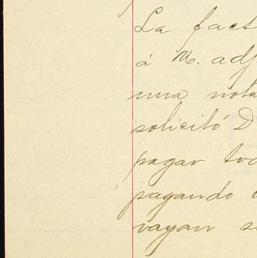 La fact
á M. adj
una nota
solicitó D
pagar tod
pagando
vayan s